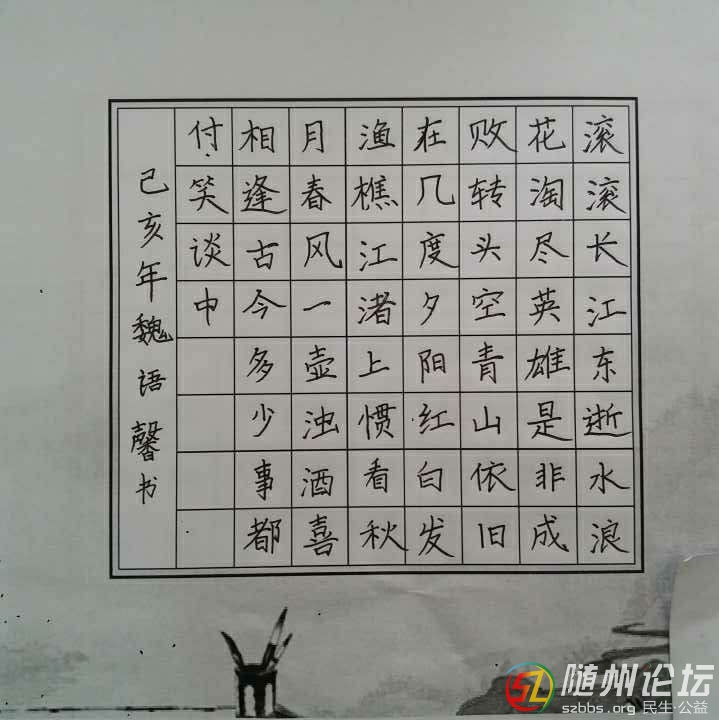 滚滚长江东逝水浪
花淘尽英雄是非成
败转头空青山依旧
在几度夕阳红白发
渔樵江渚上惯看秋
月春风一壶浊酒喜
相逢古今多少事都
付笑谈中
己亥年魏语馨书
随州论坛
szbbs.org 民生·公益